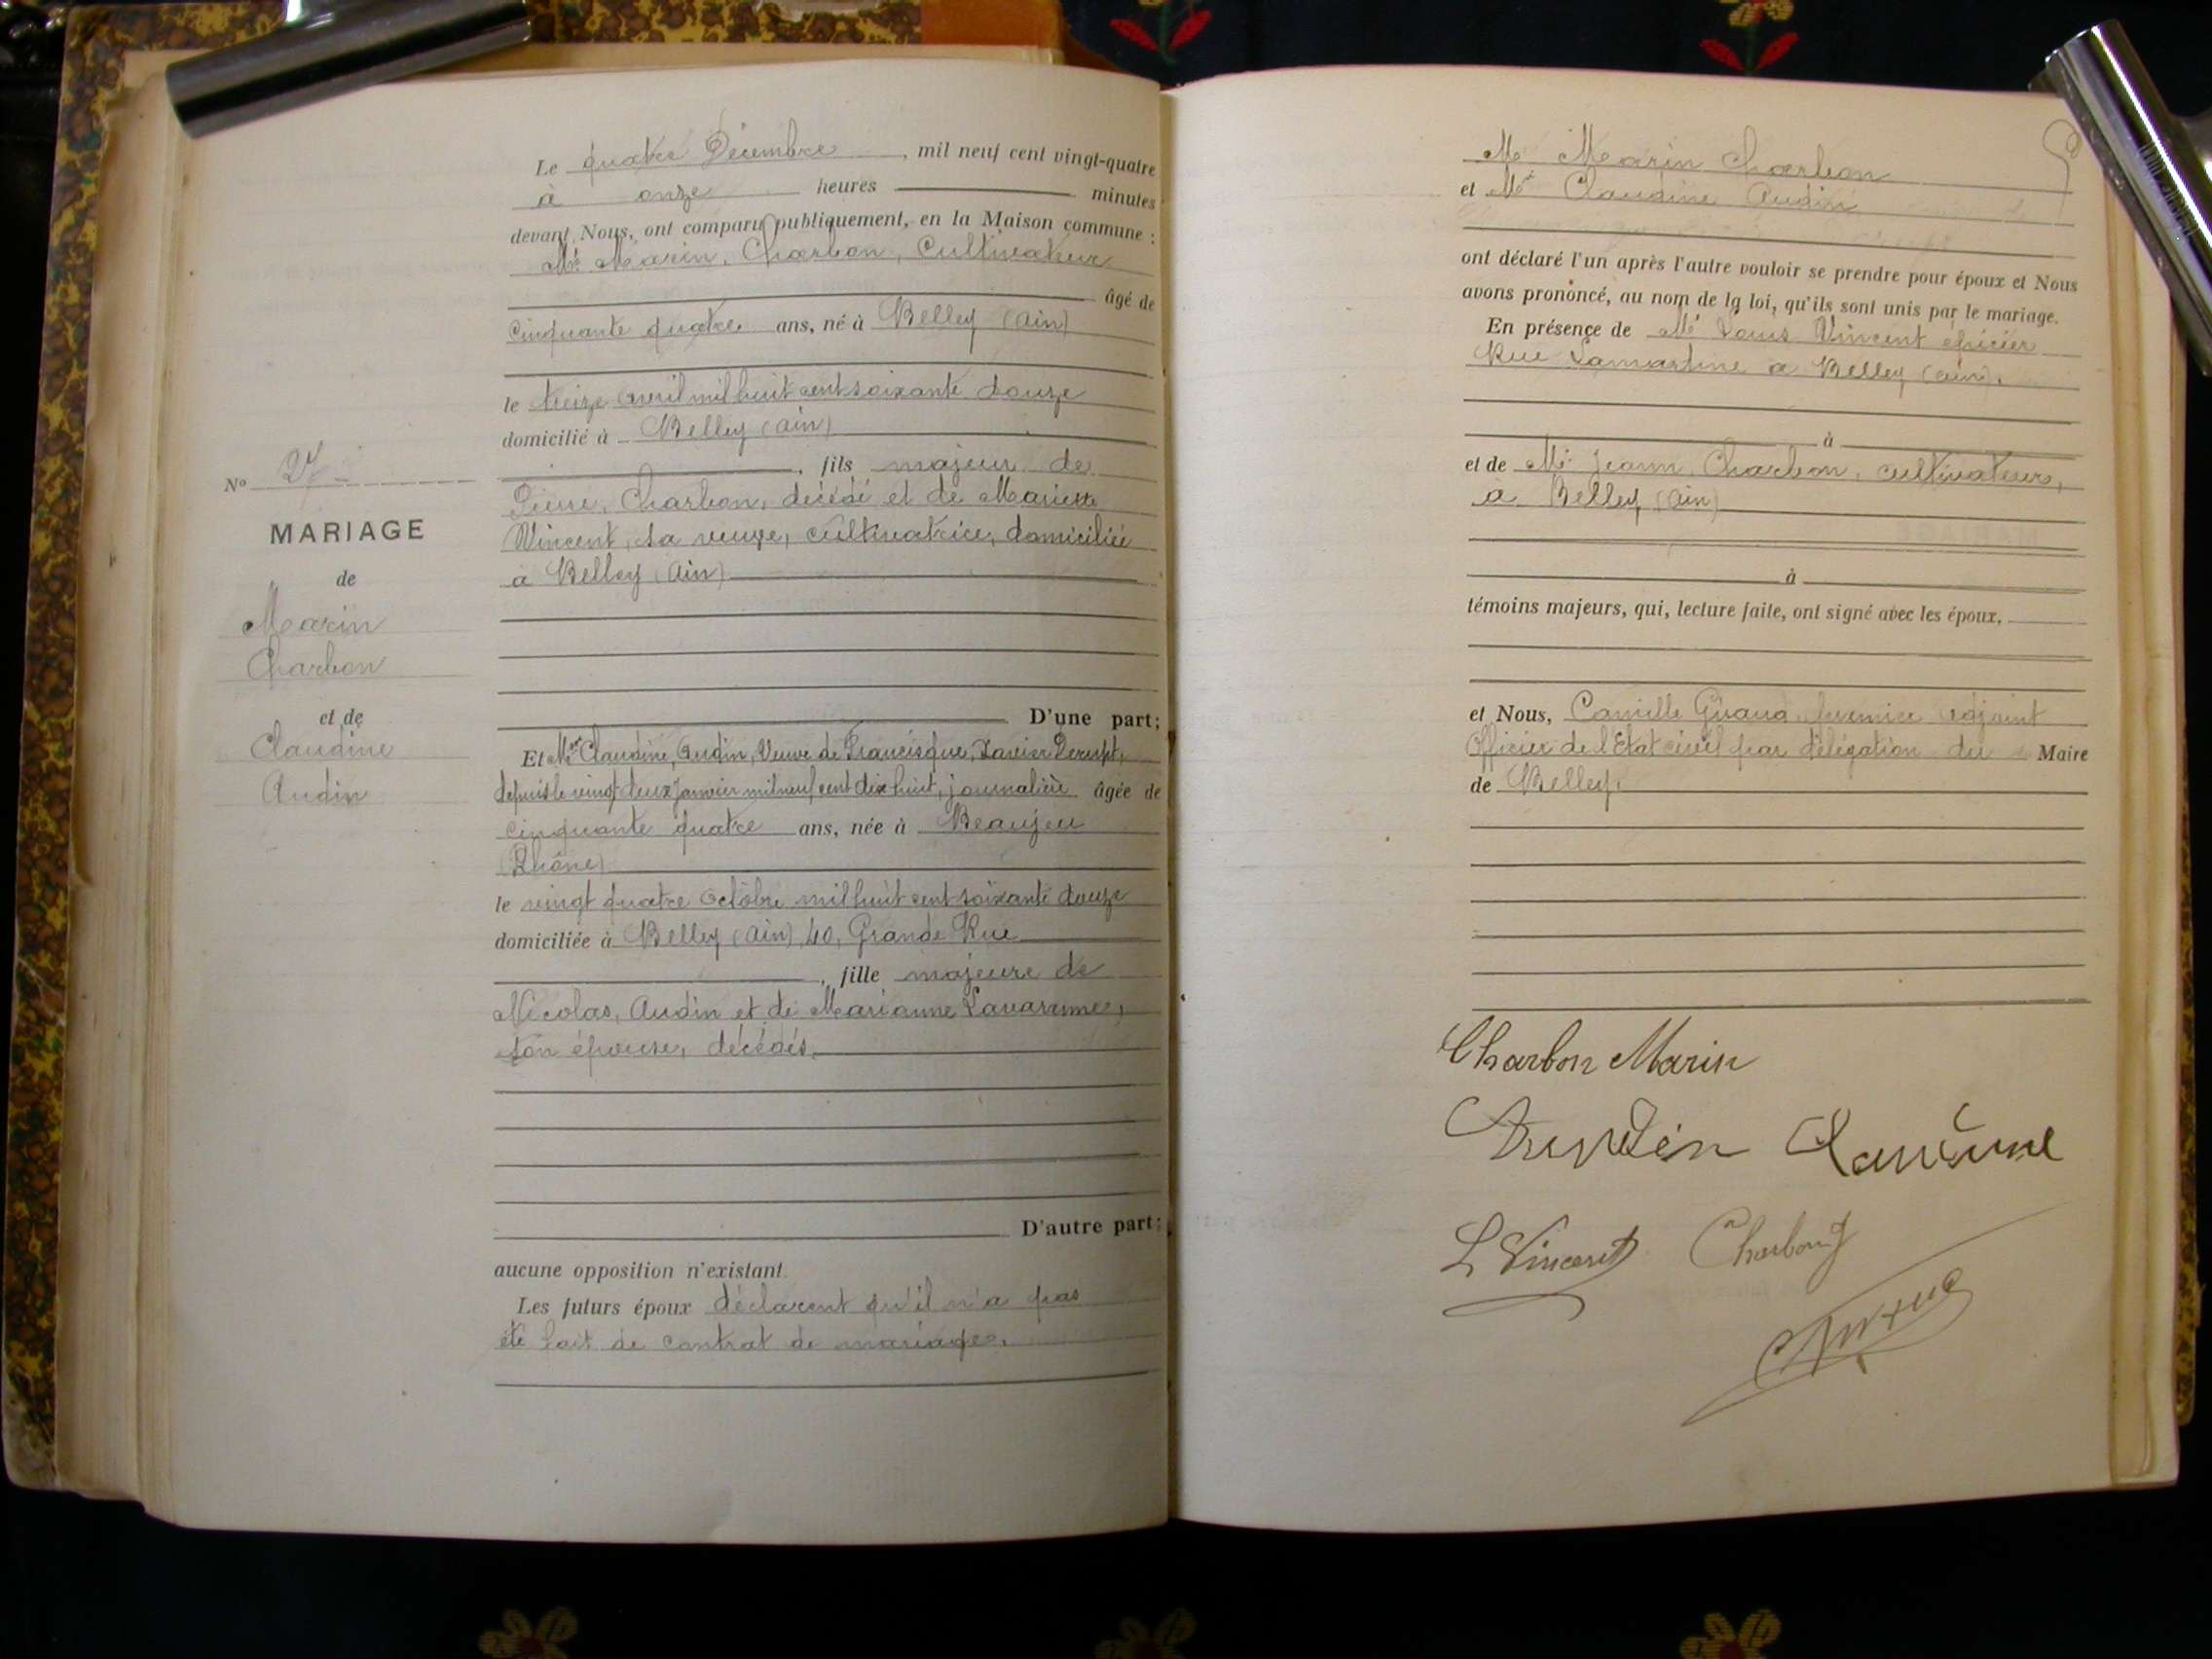 Le quatre Décembre, mil neuf cent vingt-quatre
à onze heures minutes
devant Nous, ont comparu publiquement, en la Maison commune :
Mr Marin, Charbon, Cultivateur
âgé de
cinquante quatre ans, né à Belley (Ain)
le treize avril mil huit cent soixante douze
domicilié à Belley (Ain)
, fils majeur de
Pierre, Charbon, décédé et de Mariette
Vincent, sa veuve, cultivatrice, domiciliée
à Belley (Ain)
D'une part ;
Et Mme Claudine, Audin, Veuve de Francisque, Xavier
depuis le vingt deux Janvier mil neuf cent dix huit, journalière âgée de
cinquante quatre ans, née à Beaujeu
(Rhône)
le vingt quatre Octobre mil huit cent soixante douze
domiciliée à Belley (Ain), 40, Grande Rue
, fille majeure de
Nicolas, Audin et de Marianne
son épouse, décédés.
D'autre part ;
aucune opposition n'existant.
Les futurs époux déclarent qu'il n'a pas
été fait de contrat de mariage.
No 27
MARIAGE
de
Marin
Charbon
et de
Claudine
Audin
Mr Marin Charbon
et Me Claudine Audin
ont déclaré l'un après l'autre vouloir se prendre pour époux et Nous
avons prononcé, au nom de la loi, qu'ils sont unis par le mariage.
En présence de Mr Louis Vincent épicier
Rue Lamartine à Belley (ain).
à
et de Mr Jean, Charbon, cultivateur,
à Belley (Ain)
à
témoins majeurs, qui, lecture faite, ont signé avec les époux,
et Nous, Camille Giraud, premier adjoint
Officier de l'Etat civil par délégation du Maire
de Belley.
Charbon Marin
Audin Claudine
L Vincent Charbon J